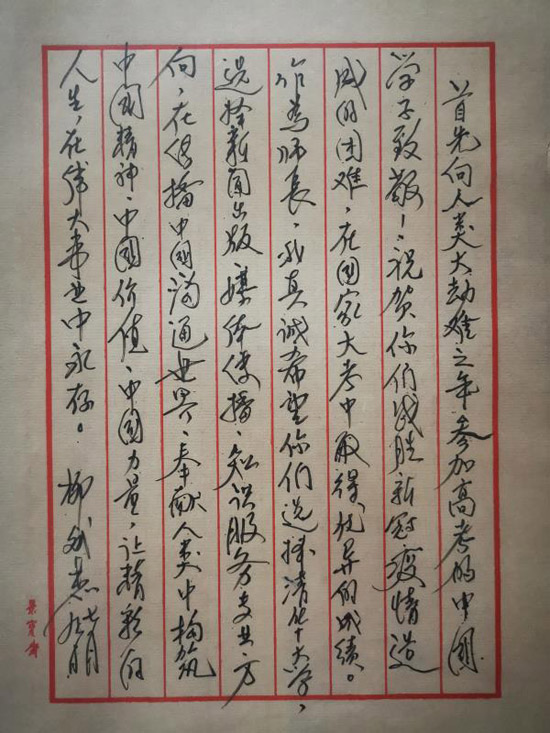 首先向人类大劫难之年参加高考的中国
学子致敬！祝贺你们战胜新冠疫情造
成的困难，在国家大考中取得优异的成绩。
作为师长，我真诚希望你们选择清华大学，
选择新闻出版、媒体传播、知识服务专业方
向，在传播中国沟通世界、奉献人类中构筑
中国精神、中国价值、中国力量，让精彩的
人生，在伟大事业中永存。 柳斌杰
荣宝斋